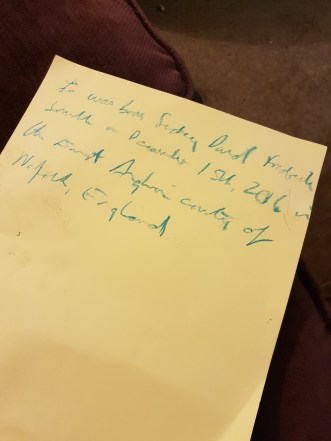 He was born Sidney David Frederick
Smith on December 15th, 2016 in
the East Anglian county of
Norfolk, England.